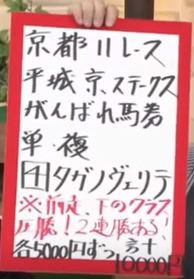 京都11レース
平城京ステークス
がんばれ馬券
単・複
4タガノヴェリテ
※前走、下のクラス
圧勝！2連勝ある！
各5000円ずつ 計10000円